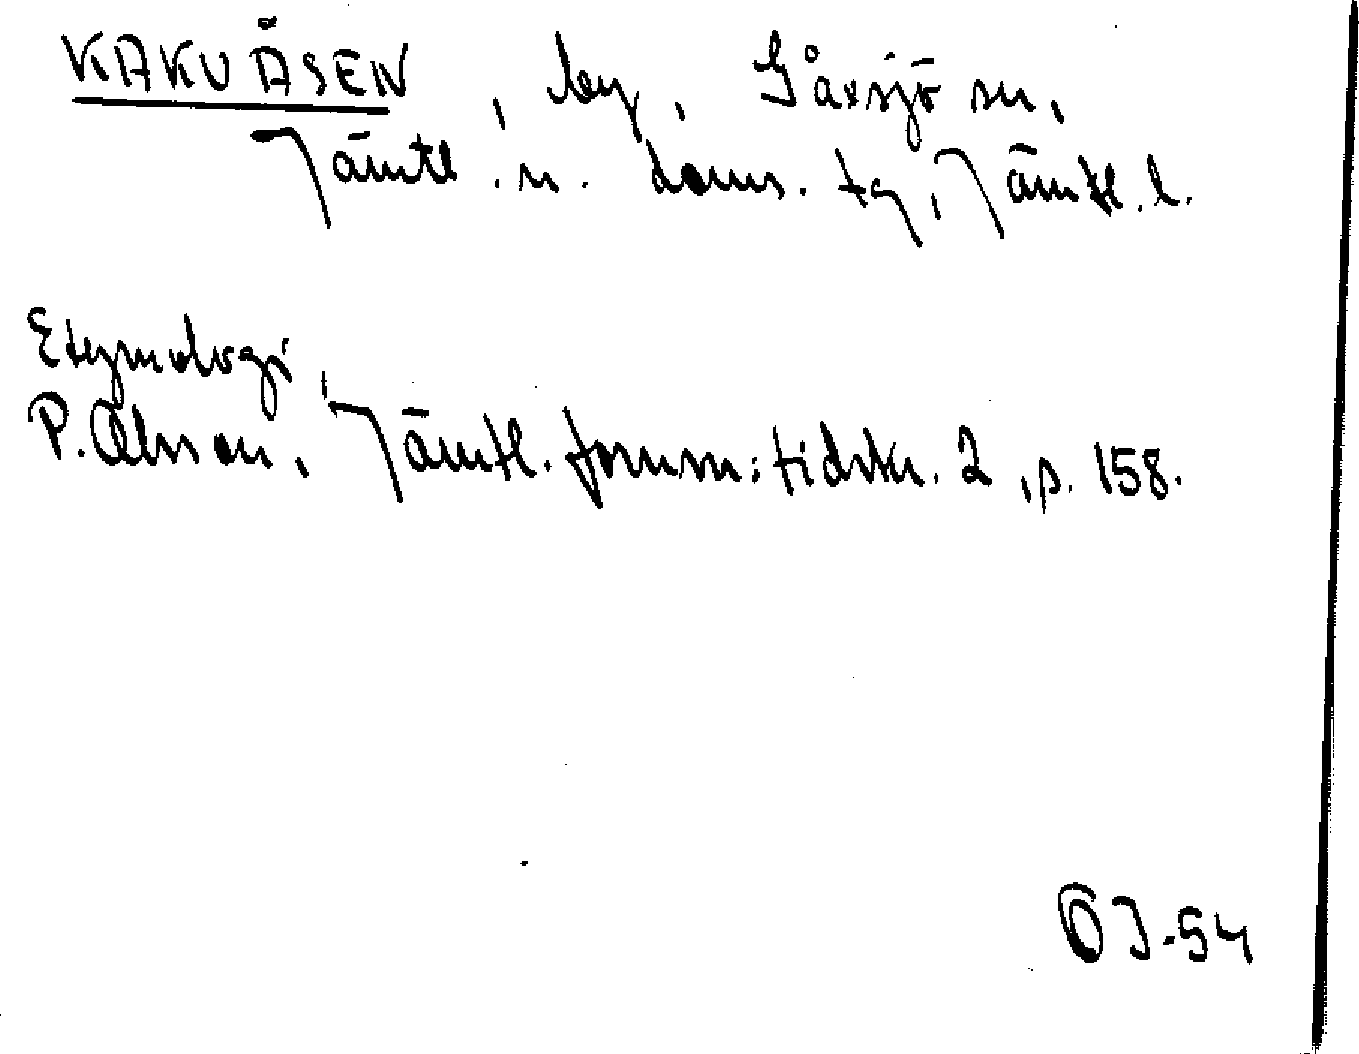 KAKUÅSEN, by, Gåxsjö sn,
Jämtl. n. doms. tg, Jämtl. l.
Etymologi,
P. Olsson, Jämtl. fornm: tidskr. 2, p. 158.
ÖJ-54